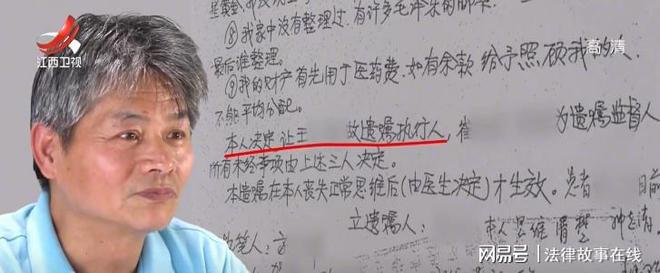 ⑧我家中没有整理过,有许多毛泽东的邮票,
最后谁整理。
⑨我的财产首先用于医药费,如有余款给予照顾我的人,
不能平均分配。
本人决定让王 做遗嘱执行人,崔 为遗嘱监督人
所有未经事项由上述三人决定。
本遗嘱在本人丧失正常思维后(由医生决定)才生效。患者 目前
立遗嘱人: 本人思维清楚 神志清
执笔人:
江西卫视
高清
网易号 法律故事在线